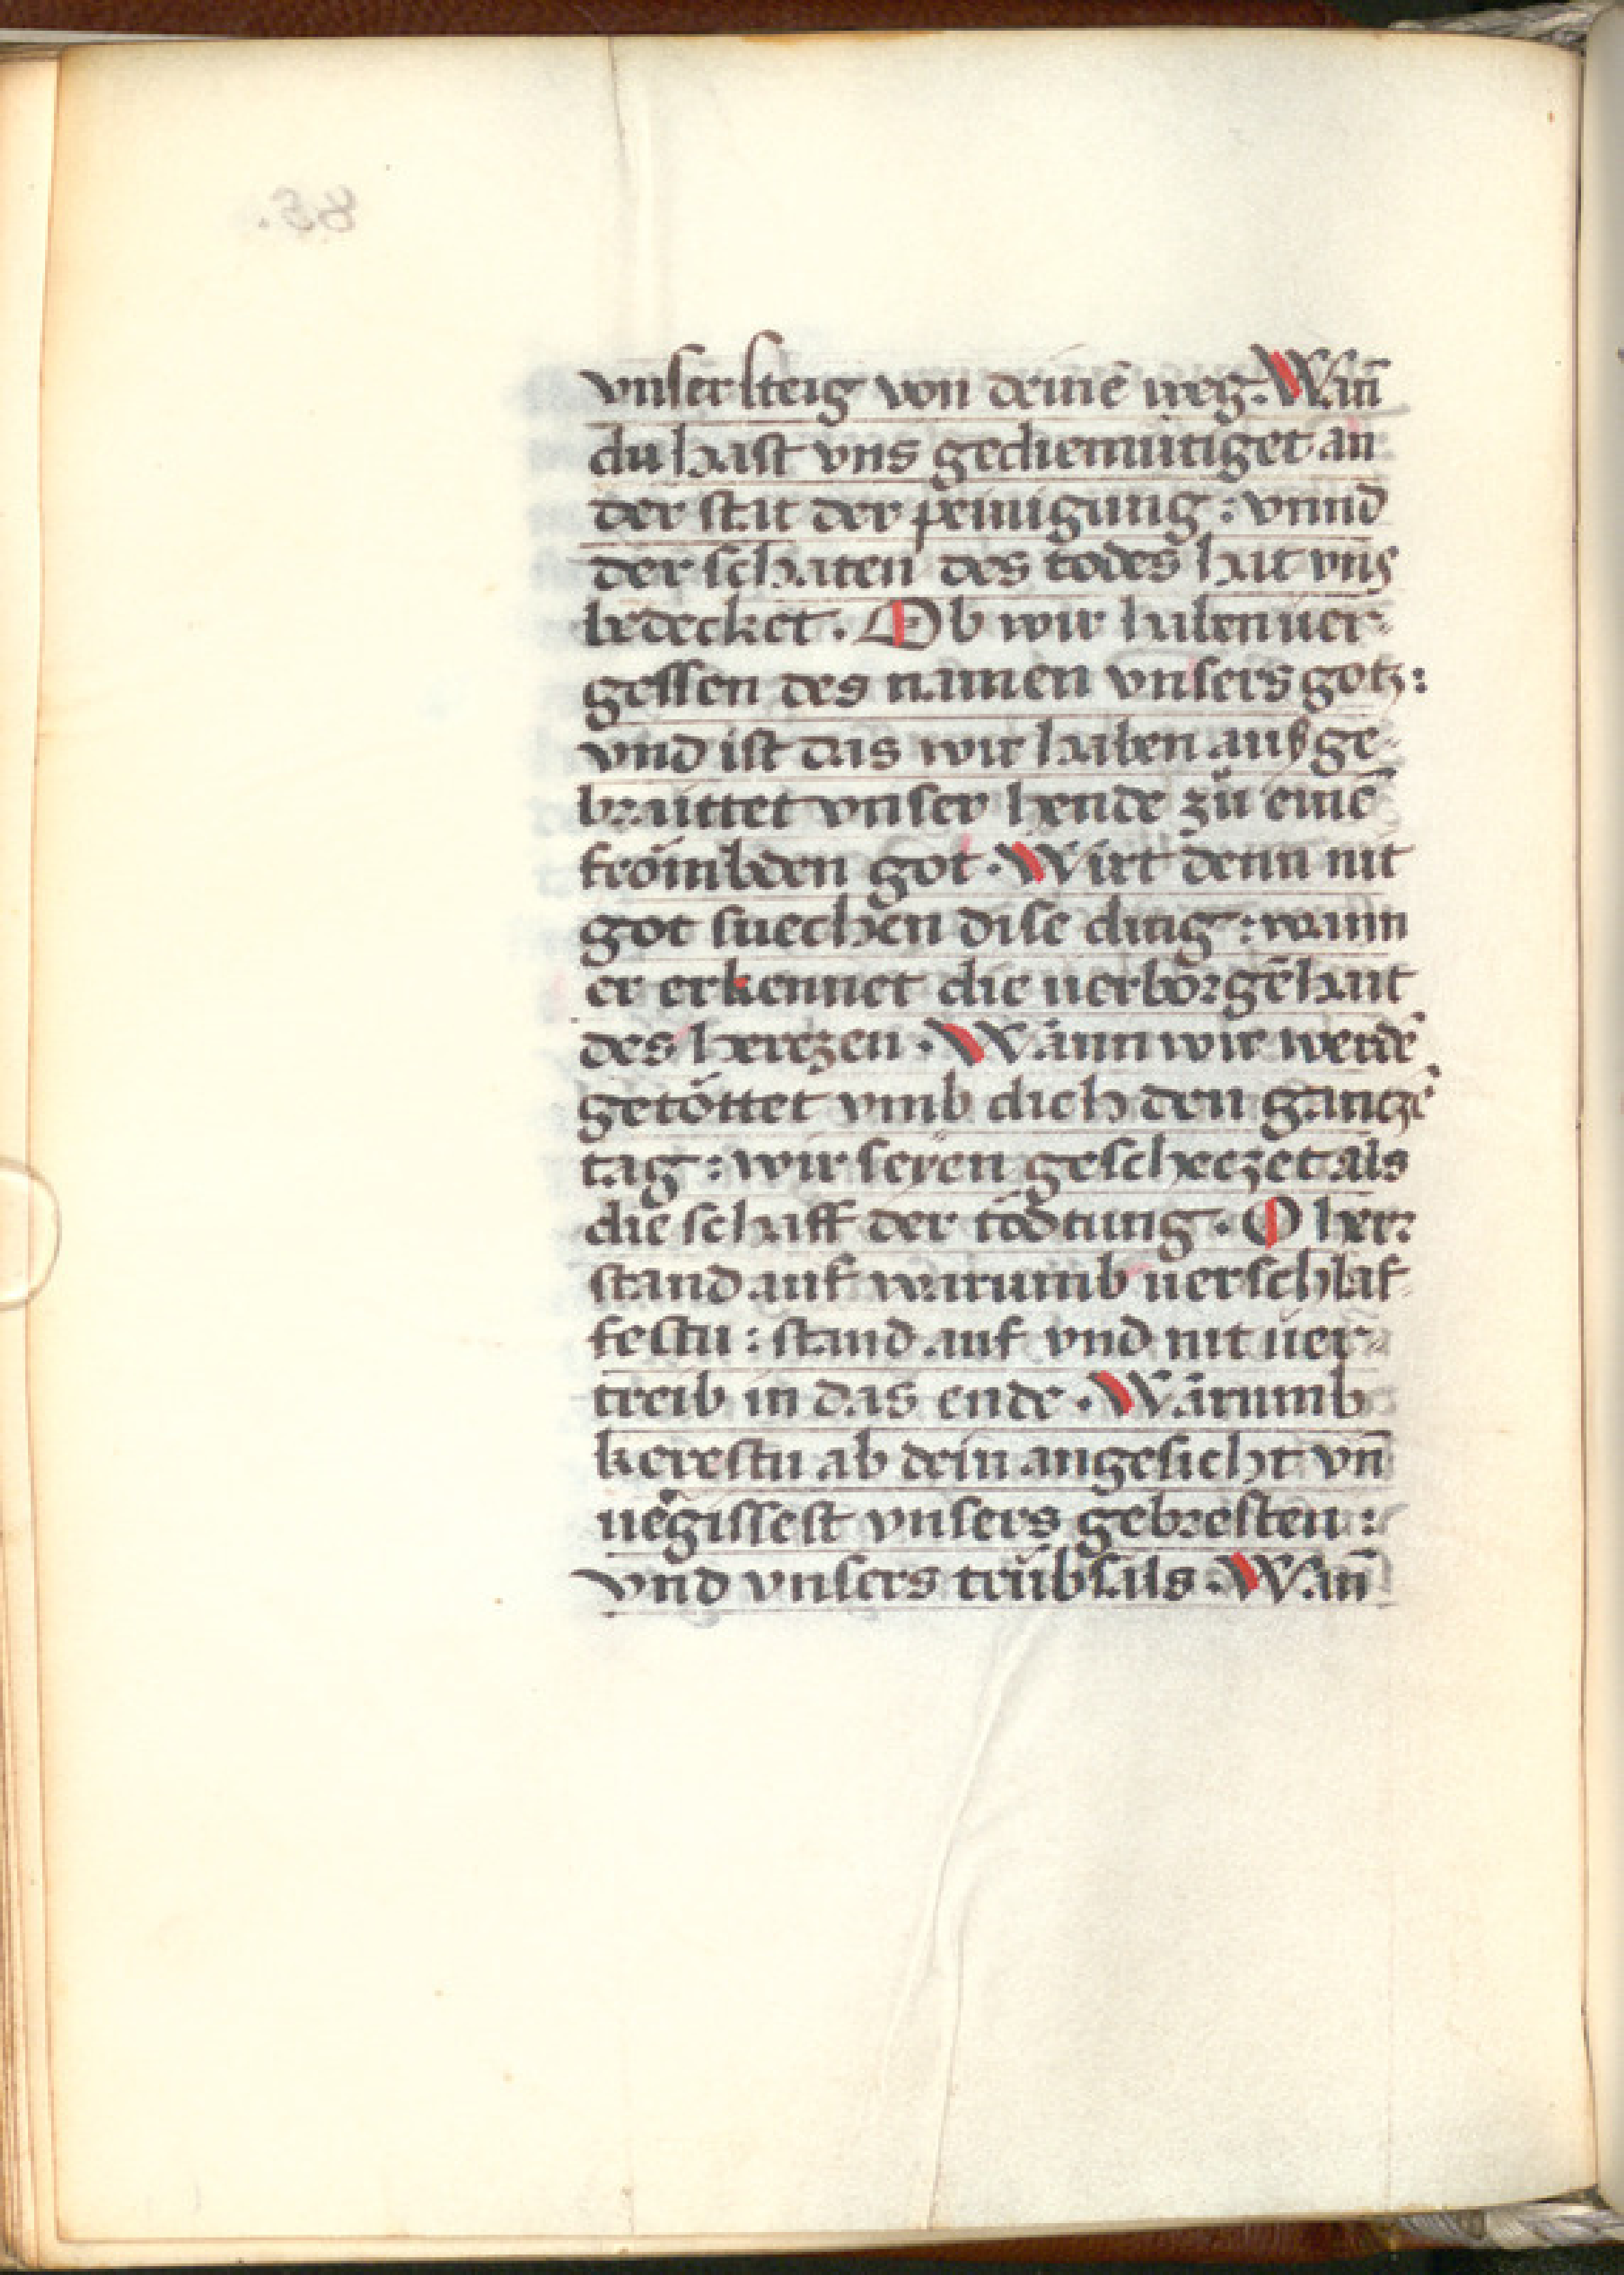 vnser steig von deinē weg · Wañ
du hast vns gediemütiget an
der stat der peinigung : vnnd
der schaten des todes hat vns
bedecket · Ob wir haben uer-
gessen des namen vnsers gotz :
vnd ist das wir haben auß ge-
braittet vnser hende zů einē
frömbden got · Wirt denn nit
got suechen dise ding : wann
er erkennet die uerborgēhait
des herczen · Wann wir werdē
getöttet vmb dich den ganczē
tag : wir seyen gescheczet als
die schaff der tödtung · O herr
stand auf warumb uerschlaf-
festu : stand auf vnd nit uer-
treib in das ende · Warumb
kerestu ab dein angesicht vñ
uergissest vnsers gebresten :
vnd vnsers trübsals · Wañ